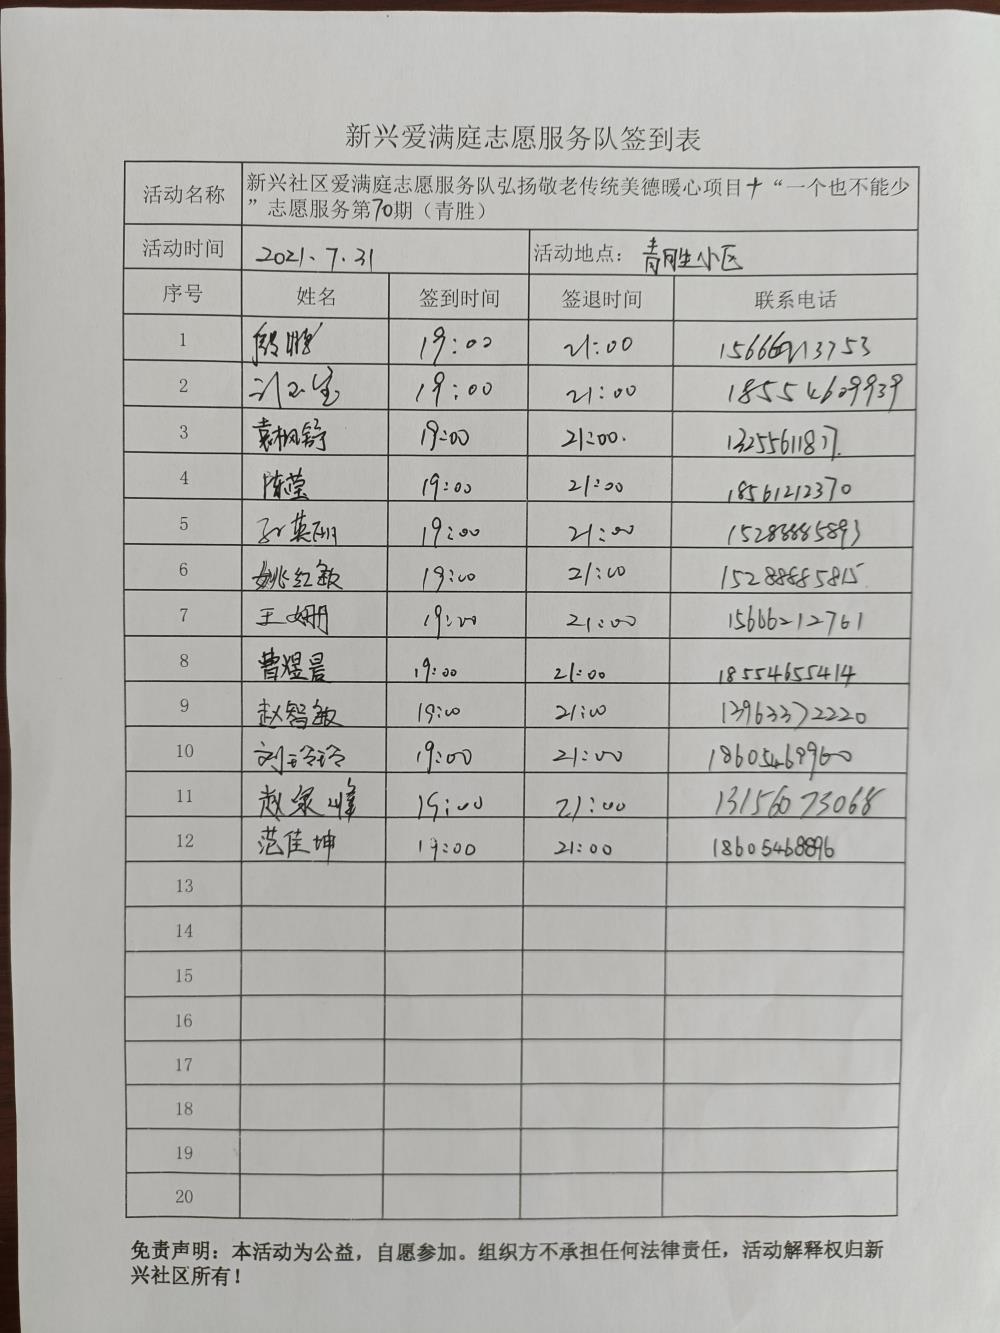 新兴爱满庭志愿服务队签到表
活动名称 新兴社区爱满庭志愿服务队弘扬敬老传统美德暖心项目十“一个也不能少
”志愿服务第70期（青胜）
活动时间 2021.7.31 活动地点： 青胜小区
序号 姓名 签到时间 签退时间 联系电话
1 19:00 21:00
2 19:00 21:00 18554609939
3 袁枫舒 19:00 21:00.
4 陈莹 19:00 21:00 18561212370
5 19:00 21:00 15288885893
6 姚红敏 19:00 21:00 15288885815
7 王姗 19:00 21:00 15666212761
8 曹煜晨 19:00 21:00 18554655414
9 赵智敏 19:00 21:00 13963372220
10 刘玲玲 19:00 21:00 18605469960
11 赵泉峰 19:00 21:00 13156073068
12 范佳坤 19:00 21:00 18605468896
13
14
15
16
17
18
19
20
免责声明：本活动为公益，自愿参加。组织方不承担任何法律责任，活动解释权归新
兴社区所有！